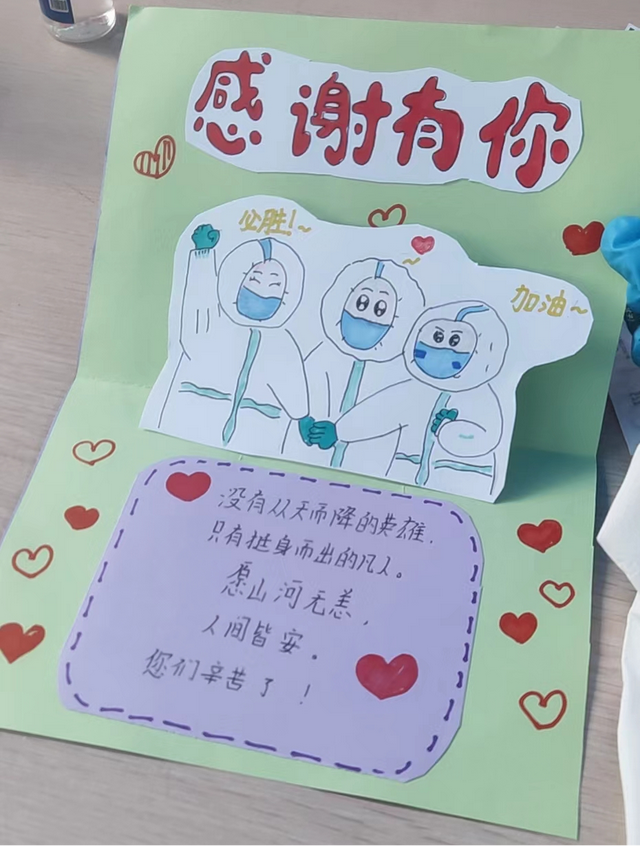 感谢有你
必胜!~
~
加油~
没有从天而降的英雄.
只有挺身而出的凡人。
愿山河无恙,
人间皆安。
您们辛苦了!